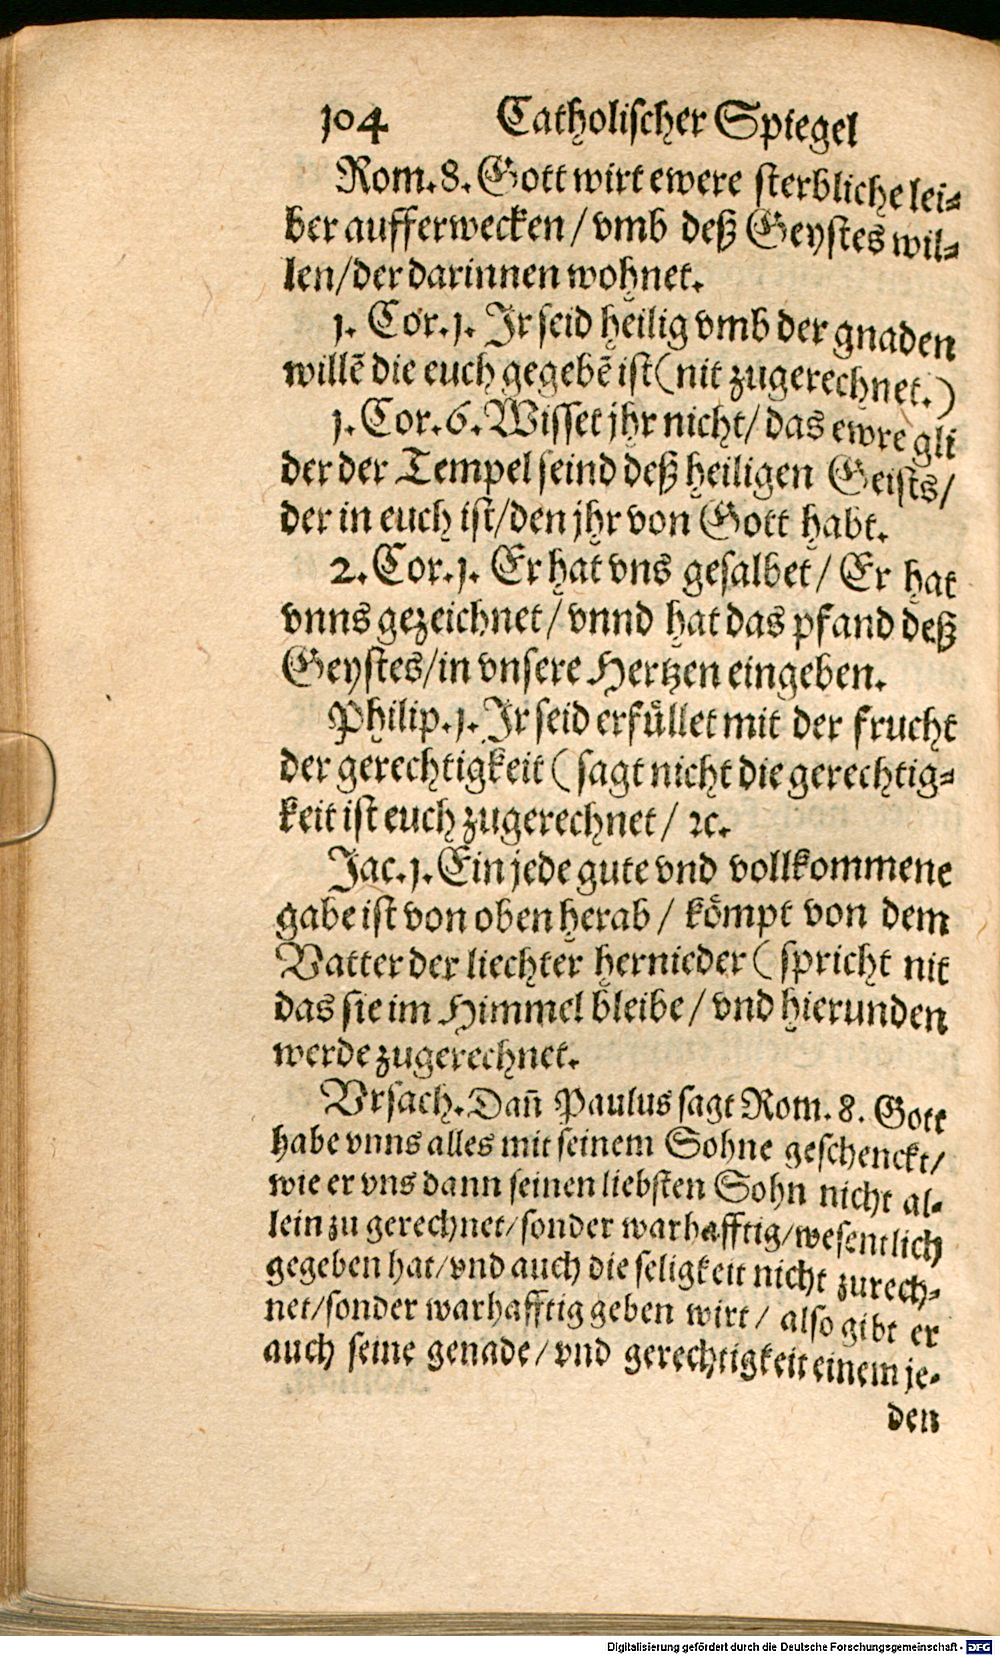 104 Catholischer Spiegel
Rom. 8. Gott wirt ewere sterbliche lei⸗
ber aufferwecken / vmb deß Geystes wil⸗
len / der darinnen wohnet.
1. Cor. 1. Ir seid heilig vmb der gnaden
willē die euch gegebē ist (nit zugerechnet.)
1. Cor. 6. Wisset jhr nicht / das ewre gli
der der Tempel seind deß heiligen Geists /
der in euch ist / den jhr von Gott habt.
2. Cor. 1. Er hat vns gesalbet / Er hat
vnns gezeichnet / vnnd hat das pfand deß
Geystes / in vnsere Hertzen eingeben.
Philip. 1. Ir seid erfüllet mit der frucht
der gerechtigkeit ( sagt nicht die gerechtig⸗
keit ist euch zugerechnet / ꝛc.
Jac. 1. Ein jede gute vnd vollkommene
gabe ist von oben herab / kömpt von dem
Vatter der liechter hernieder ( spricht nit
das sie im Himmel bleibe / vnd hierunden
werde zugerechnet.
Vrsach. Dañ Paulus sagt Rom. 8. Gott
habe vnns alles mit seinem Sohne geschenckt /
wie er vns dann seinen liebsten Sohn nicht al⸗
lein zu gerechnet / sonder warhafftig / wesentlich
gegeben hat / vnd auch die seligkeit nicht zurech⸗
net / sonder warhafftig geben wirt / also gibt er
auch seine genade / vnd gerechtigkeit einem je⸗
den
Digitalisierung gefördert durch die Deutsche Forschungsgemeinschaft - DFG